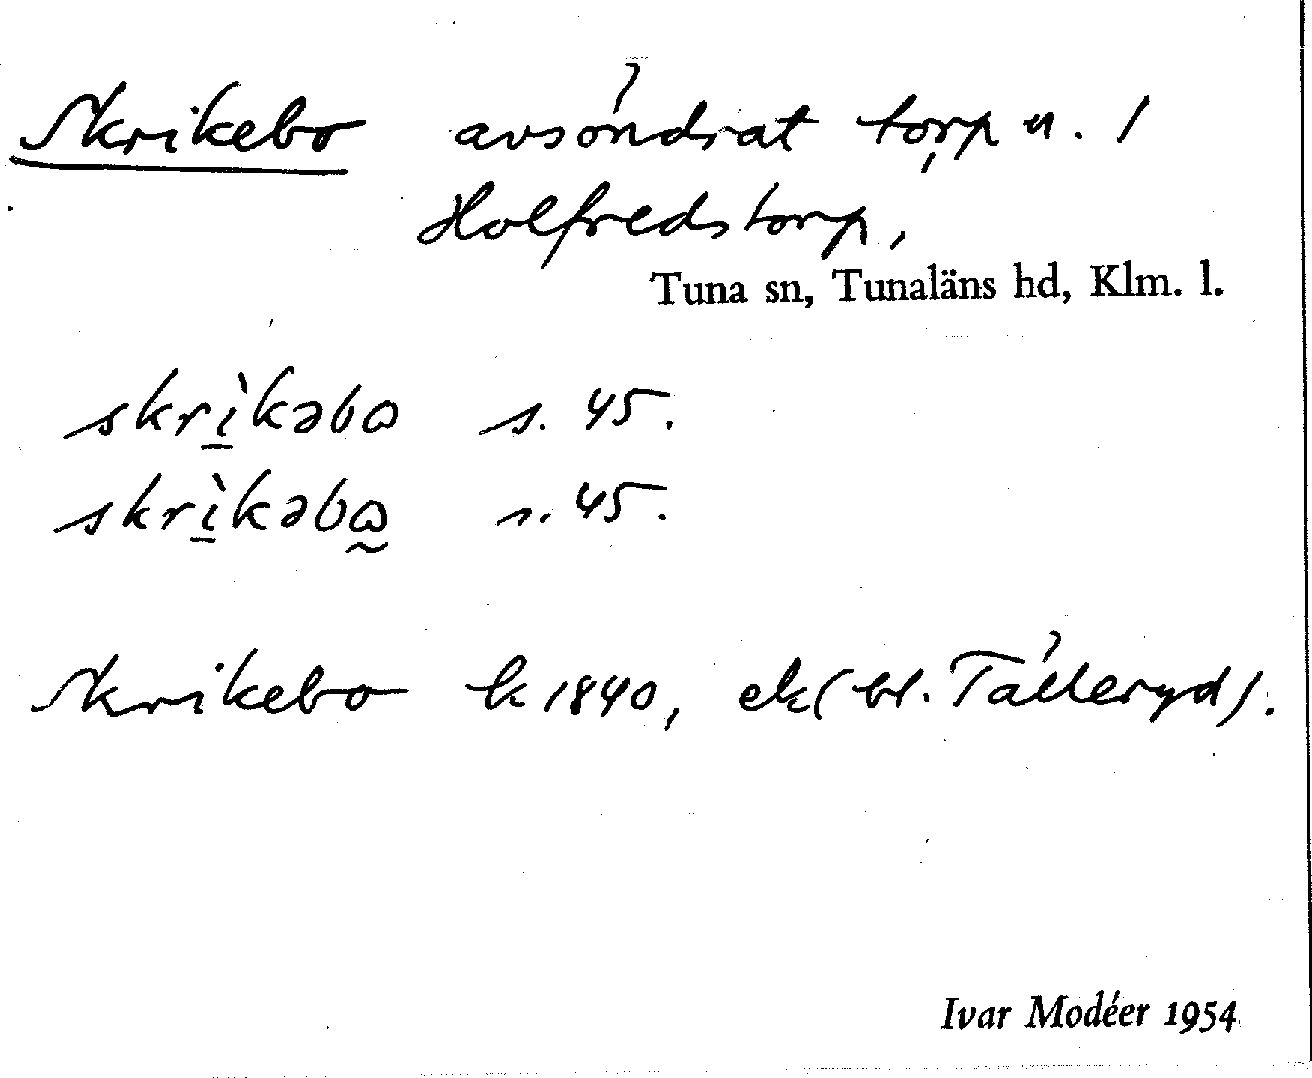 Skrikebo avsöndrat torp u. 1
Holfredstorp,
Tuna sn, Tunaläns hd, Klm. l.
skrìkəbɷ s. 45.
skrìkəbɷ s. 45.
Skrikebo k 1840, ek (bl. Tälleryd).
Ivar Modéer 1954